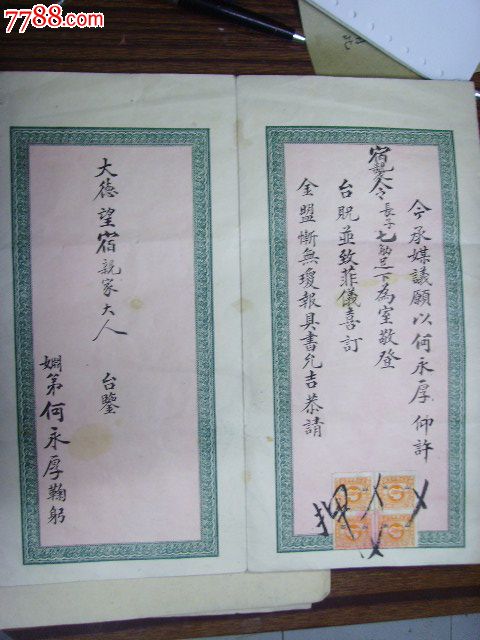 7788.com
中国收藏热线
今承媒議願以何永厚 仰許
令長子七 足下為室敬登
台貺並致菲儀喜訂
金盟慚無瓊報具書允吉恭請
押
大德望宿親家大人 台鑒
姻弟何永厚鞠躬